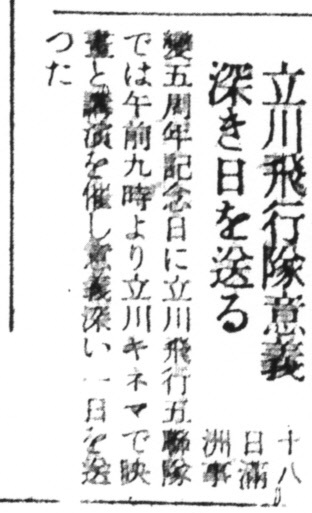 立川飛行隊意義
深き日を送る
十八
日滿
洲事
變五周年記念日に立川飛行五聯隊
では午前九時より立川キネマで映
畫と講演を催し意義深い一日を送
つた